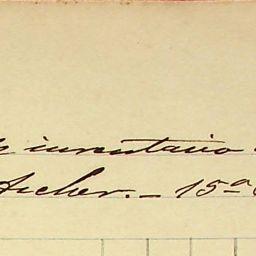 inventario
Archer. — 15ª